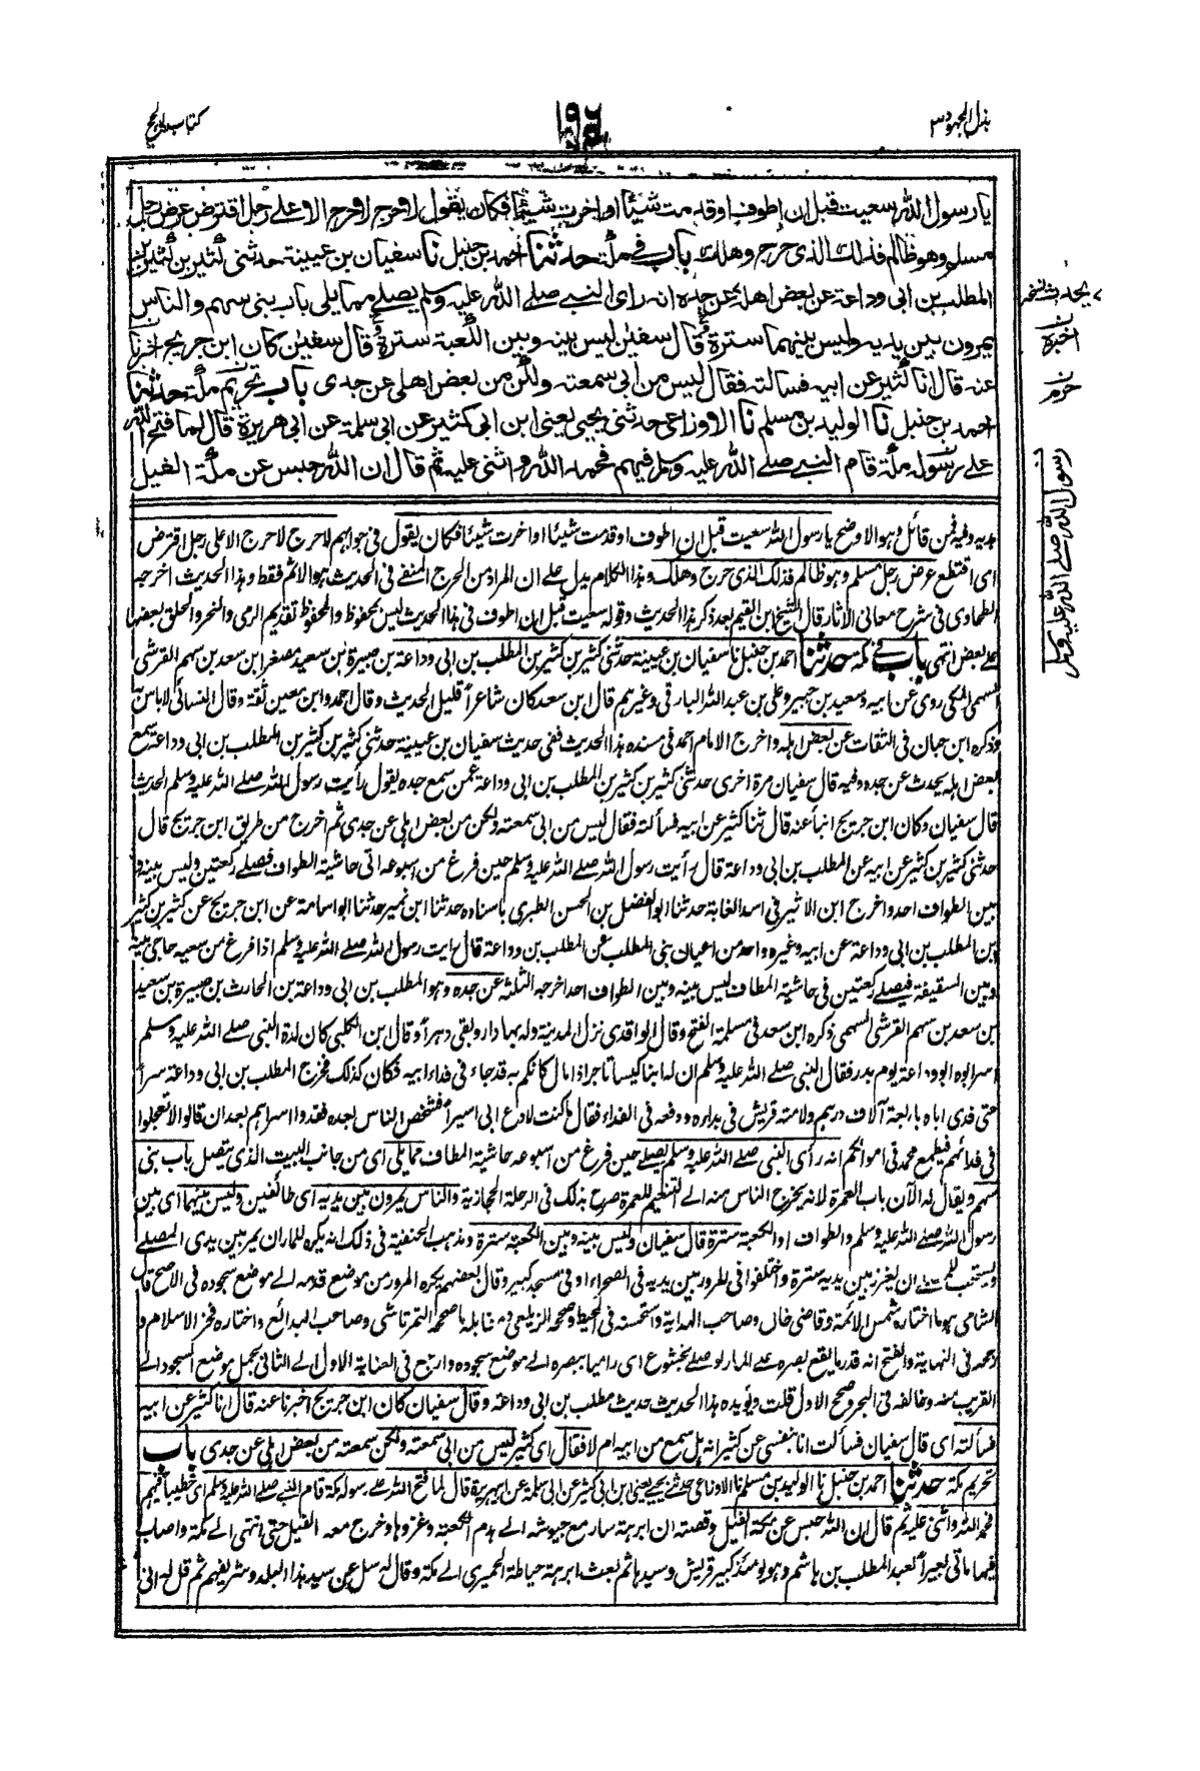 بذل المجهود ٣
١٩٤
كتاب الحج
يا رسول الله سعيت قبل ان اطوف او قدمت شيئا او اخرت شيئا فكان يقول لا حرج لا حرج الا على رجل اقترض عرض رجل
مسلم وهو ظالم فذلك الذى حرج وهلك باب فى مكة حدثنا احمد بن حنبل نا سفيان بن عيينة حدثنى كثير بن كثير بن
المطلب بن ابى وداعة عن بعض اهله عن جده انه راى النبى صلى الله عليه وسلم يصلى مما يلى باب بنى سهم والناس
يمرون بين يديه وليس بينهما سترة قال سفين ليس بينه وبين الكعبة سترة قال سفين كان ابن جريج اخبرنا
عنه قال انا كثير عن ابيه فسالته فقال ليس من ابى سمعته ولكن من بعض اهلى عن جدى باب تحريم مكة حدثنا
احمد بن حنبل نا الوليد بن مسلم نا الاوزاعى حدثنى يحيى يعنى ابن ابى كثير عن ابى سلمة عن ابى هريرة قال لما فتح الله
على رسوله مكة قام النبى صلى الله عليه وسلم فيهم فحمد الله واثنى عليه ثم قال ان الله حبس عن مكة الفيل
اخبره
رسول الله صلى الله عليه وسلم
فمن قائل وهو الاوضح يا رسول الله سعيت قبل ان اطوف او قدمت شيئا او اخرت شيئا فكان يقول فى جوابهم لا حرج لا حرج الا على رجل اقترض
اى اقتطع عرض رجل مسلم وهو ظالم فذلك الذى حرج وهلك وهذا الكلام يدل على ان المراد من الحرج المنفى فى الحديث هو الاثم فقط وهذا الحديث اخرجه
الطحاوى فى شرح معانى الاثار قال الشيخ ابن القيم بعد ذكر هذا الحديث وقوله سعيت قبل ان اطوف فى هذا الحديث ليس بمحفوظ والمحفوظ تقديم الرمى والنحر والحلق بعضها
على بعض انتهى باب فى مكة حدثنا احمد بن حنبل نا سفيان بن عيينة حدثنى كثير بن كثير بن المطلب بن ابى وداعة بن صبيرة بن سعيد مصغرا ابن سعد بن سهم القرشى
السهمى المكى روى عن ابيه وسعيد بن جبير وعلى بن عبد الله البارقى وغيرهم قال ابن سعد كان شاعرا قليل الحديث وقال احمد وابن معين ثقة وقال النسائى لا باس به
وذكره ابن حبان فى الثقات عن بعض اهله واخرج الامام احمد فى مسنده هذا الحديث ففى حديث سفيان بن عيينة حدثنى كثير بن كثير بن المطلب بن ابى وداعة سمع
بعض اهله يحدث عن جده وفيه قال سفيان مرة اخرى حدثنى كثير بن كثير بن المطلب بن ابى وداعة عمن سمع جده يقول رأيت رسول الله صلى الله عليه وسلم الحديث
قال سفيان وكان ابن جريج انبأ عنه قال ثنا كثير عن ابيه فسألته فقال ليس من ابى سمعته ولكن من بعض اهلى عن جدى ثم اخرج من طريق ابن جريج قال
حدثنى كثير بن كثير عن ابيه عن المطلب بن ابى وداعة قال رأيت رسول الله صلى الله عليه وسلم حين فرغ من اسبوعه اتى حاشية الطواف فصلى ركعتين وليس بينه و
بين الطواف احد واخرج ابن الاثير فى اسد الغابة حدثنا ابو الفضل بن الحسن الطبرى باسناده حدثنا ابن نمير حدثنا ابو اسامة عن ابن جريج عن كثير بن كثير
بن المطلب بن ابى وداعة عن ابيه وغير واحد من اعيان بنى المطلب عن المطلب بن وداعة قال رايت رسول الله صلى الله عليه وسلم اذا فرغ من سعيه حاجى بينه
وبين السقيفة فيصلى ركعتين فى حاشية المطاف ليس بينه وبين الطواف احد اخرجه الثلثة عن جده وهو المطلب بن ابى وداعة بن الحارث بن صبيرة بن سعيد
بن سعد بن سهم القرشى السهمى ذكره ابن سعد فى مسلمة الفتح وقال الواقدى نزل المدينة وله بها دار وبقى دهرا وقال ابن الكلبى كان لدة النبى صلى الله عليه وسلم
اسر ابوه ابو وداعة يوم بدر فقال النبى صلى الله عليه وسلم ان له ابنا كيسا تاجرا ذا مال كانكم به قد جاء فى فداء ابيه فكان كذلك فخرج المطلب بن ابى وداعة سرا
حتى فدى اباه باربعة آلاف درهم ولامته قريش فى بداره ودفعه فى الفداء فقال ما كنت لادع ابى اسيرا فشخص الناس بعده ففدوا اسراهم بعد ان قالوا لا تعجلوا
فى فدائهم فيطمع محمد فى اموالكم انه رأى النبى صلى الله عليه وسلم يصلى حين فرغ من اسبوعه حاشية المطاف مما يلى اى من جانب البيت الذى يتصل باب بنى
سهم ويقال له الآن باب العمرة لانه يخرج الناس منه الى التنعيم للعمرة صرح بذلك فى الرحلة الحجازية والناس يمرون بين يديه اى طائفين وليس بينهما اى بين
رسول الله صلى الله عليه وسلم والطواف او الكعبة سترة قال سفيان وليس بينه وبين الكعبة سترة ومذهب الحنفية فى ذلك انه يكره للمار ان يمر بين يدى المصلى
ويستحب للمصلى ان يغرز بين يديه سترة واختلفوا فى المرور بين يديه فى الصحراء او فى مسجد كبير وقال بعضهم يكره المرور من موضع قدمه الى موضع سجوده فى الاصح قال
الشامى هو ما اختاره شمس الائمة وقاضى خان وصاحب الهداية واستحسنه فى المحيط وصححه الزيلعى ومقابله ما صححه التمرتاشى وصاحب البدائع واختاره فخر الاسلام و
رجحه فى النهاية والفتح انه قدر ما يقع بصره على المار لو صلى بخشوع اى راميا ببصره الى موضع سجوده وارجع فى العناية الاول الى الثانى بحمل موضع السجود الى
القريب منه وخالفه فى البحر وصحح الاول قلت ويؤيده هذا الحديث حديث مطلب بن ابى وداعة وقال سفيان كان ابن جريج اخبرنا عنه قال انا كثير عن ابيه
فسألته اى قال سفيان فسألت انا بنفسى عن كثير انه هل سمع من ابيه ام لا فقال اى كثير ليس من ابى سمعته ولكن سمعته من بعض اهلى عن جدى باب
تحريم مكة حدثنا احمد بن حنبل نا الوليد بن مسلم نا الاوزاعى حدثنى يحيى يعنى ابن ابى كثير عن ابى سلمة عن ابى هريرة قال لما فتح الله على رسوله مكة قام النبى صلى الله عليه وسلم اى خطيبا فيهم
فحمد الله واثنى عليه ثم قال ان الله حبس عن مكة الفيل وقصته ان ابرهة سار مع جيوشه الى هدم الكعبة وغزوها وخرج معه الفيل حتى انتهى الى مكة واصاب
فيها مأتى بعيرا لعبد المطلب بن هاشم وهو يومئذ كبير قريش وسيدها ثم بعث ابرهة حياطة الحميرى الى مكة وقال له سل عن سيد هذا البلد وشريفهم ثم قل له انى